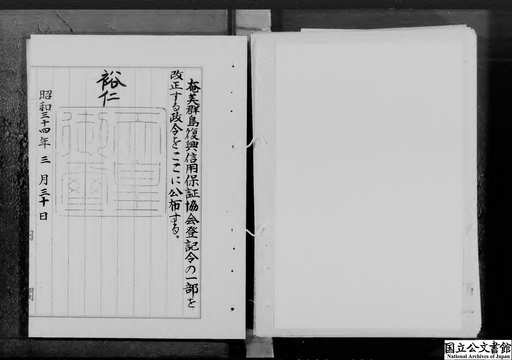 奄美群島復興信用保証協会登記令の一部を
改正する政令をここに公布する。
裕仁
天皇
御璽
昭和三十四年三月三十日
国立公文書館
National Archives of Japan